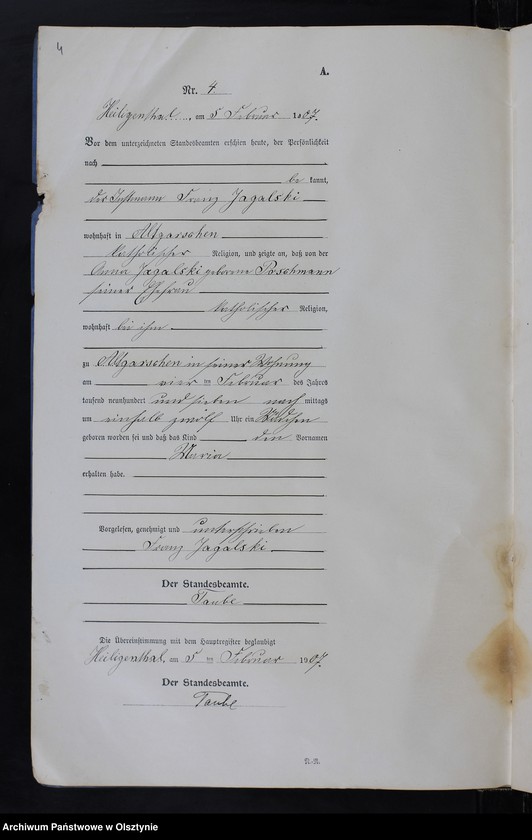 4
A.
Nr. 4
Heiligenthal, am 5 Februar 1907.
Vor dem unterzeichneten Standesbeamten erschien heute, der Persönlichkeit
nach
be kannt,
der Instmann Franz Jagalski
wohnhaft in Altgarschen
katholischer Religion, und zeigte an, daß von der
Anna Jagalski geborene Poschmann
seiner Ehefrau
katholischer Religion,
wohnhaft bei ihm
zu Altgarschen in seiner Wohnung
am vier ten Februar des Jahres
tausend neunhundert und sieben nach mittags
um einhalb zwölf Uhr ein Mädchen
geboren worden sei und daß das Kind den Vornamen
Maria
erhalten habe.
Vorgelesen, genehmigt und unterschrieben
Franz Jagalski
Der Standesbeamte.
Taube
Die Übereinstimmung mit dem Hauptregister beglaubigt
Heiligenthal, am 5 ten Februar 1907.
Der Standesbeamte.
Taube
Archiwum Państwowe w Olsztynie